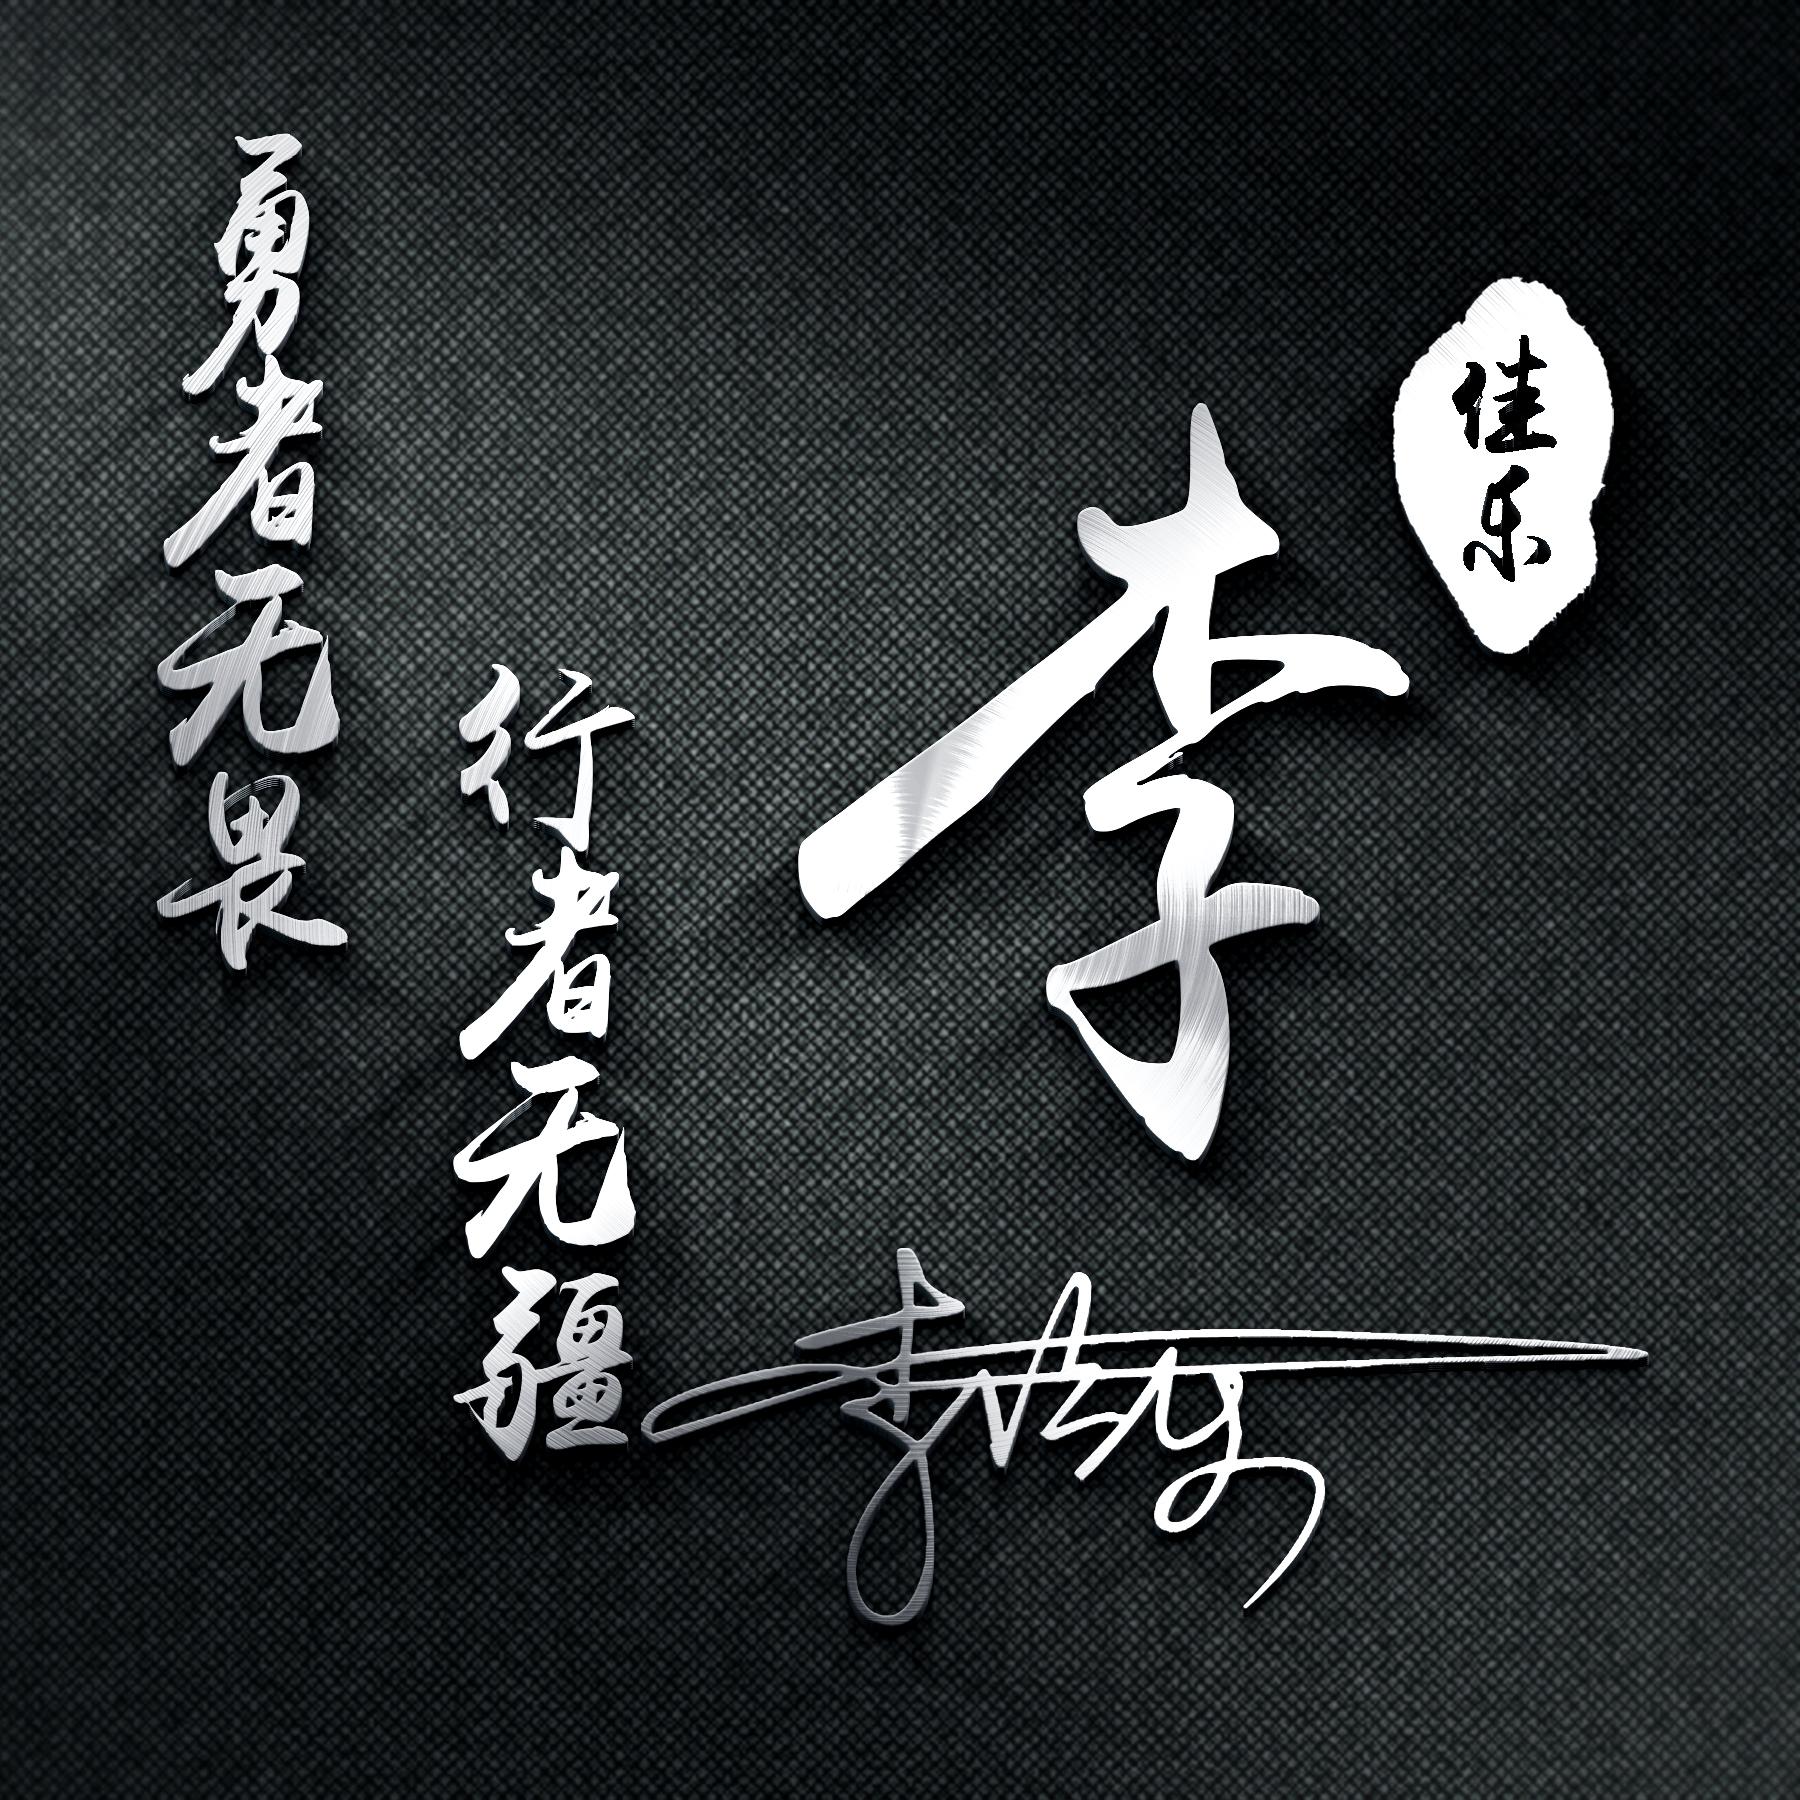 李
佳乐
行者无疆
勇者无畏
李佳乐